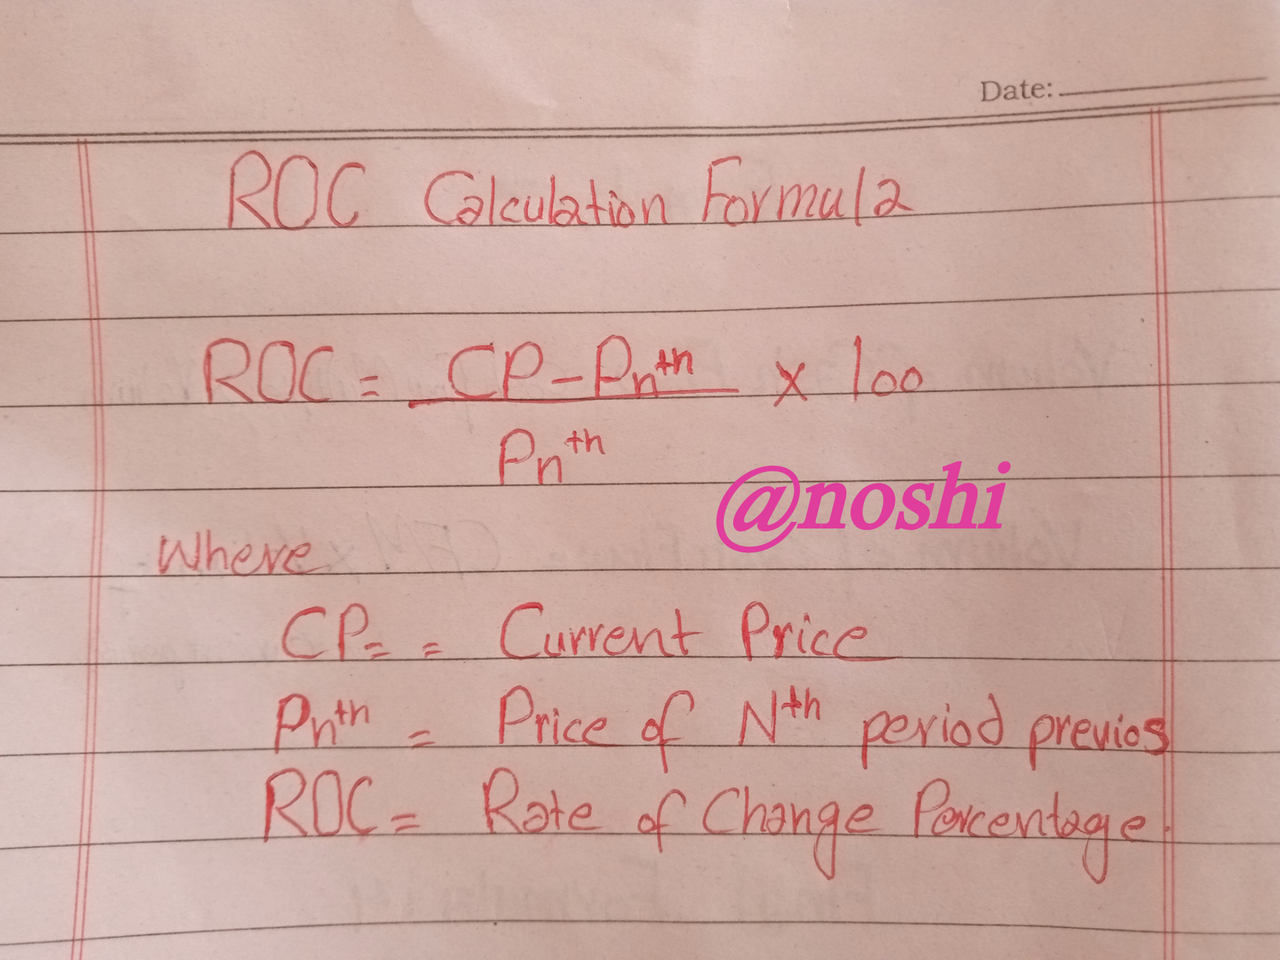 Date:
ROC Calculation Formula
ROC = CP - Pnth x 100
Pnth
@noshi
Where
CP= = Current Price
Pnth = Price of Nth period previos
ROC = Rate of Change Percentage.